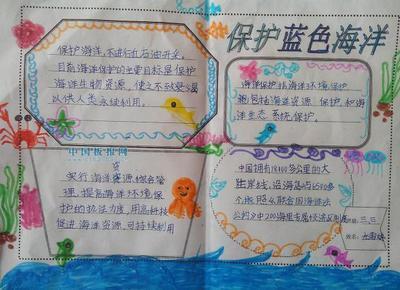 保护蓝色海洋
保护海洋,不进行石油开采,
目前海洋保护的主要目标是保护
海洋生物资源,使之不致衰竭
以供人类永续利用。
海洋保护指海洋环境保护
包括海洋资源保护和海
洋生态系统保护。
中国板报网
实行海洋资源综合管
理,提高海洋环境保
护的执法力度,用高科技
促进海洋资源可持续利用
中国拥有18000多公里的大
陆岸线,沿海岛屿6500多
个,按照《联合国海洋法
公约》中200海里专属经济
三、三
姓名